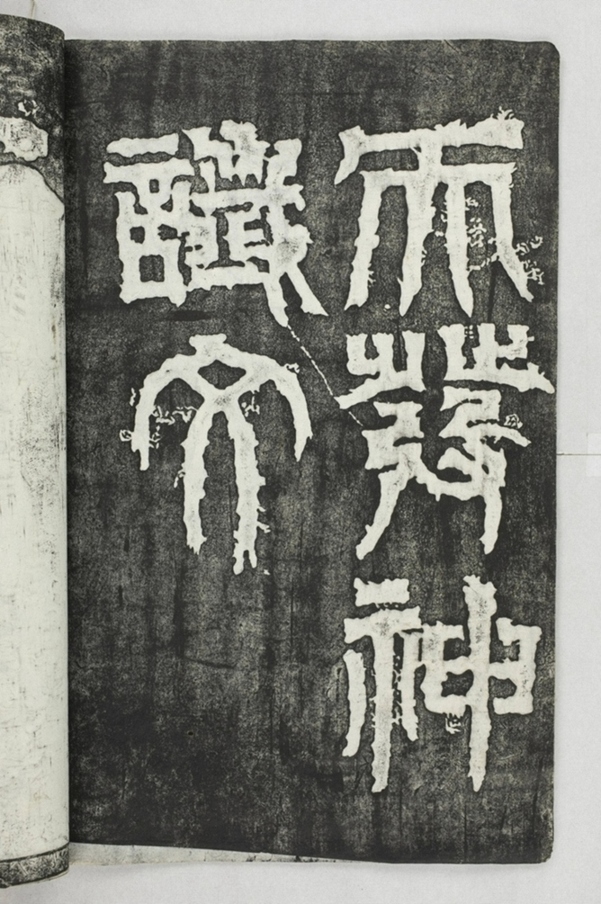 天發神
讖文